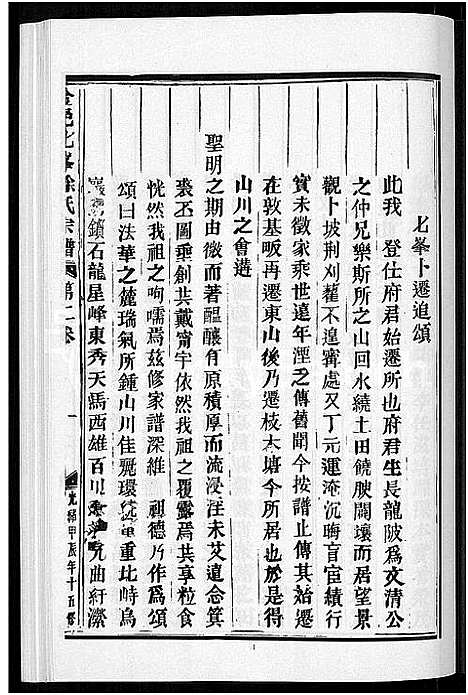 北峯卜遷追頌
此我　登仕府君始遷所也府君生長龍陂爲文清公
之仲兄樂斯所之山回水繞土田饒腴闢壤而居望景
觀卜坡荆刈藋不遑寗處又丁元運淹沉晦盲宦績行
實未徵家乘世遠年湮之傳舊聞今按譜止傳其始遷
在敦基畈再遷東山後乃遷枝大塘今所居也於是得
山川之會遘
聖明之期由微而著醞釀有原積厚而流浸注未艾遠念箕
裘丕圖垂創共戴甯宇依然我祖之覆露焉共享粒食
恍然我祖之呴嚅焉兹修家譜深維　祖德乃作爲頌
頌曰法華之麓瑞氣所鍾山川佳麗環繞重重比峙烏
石龍星峰東秀天馬西雄百川九曲紆瀠
徐氏宗譜　第二卷　一　光緒甲辰年十五修